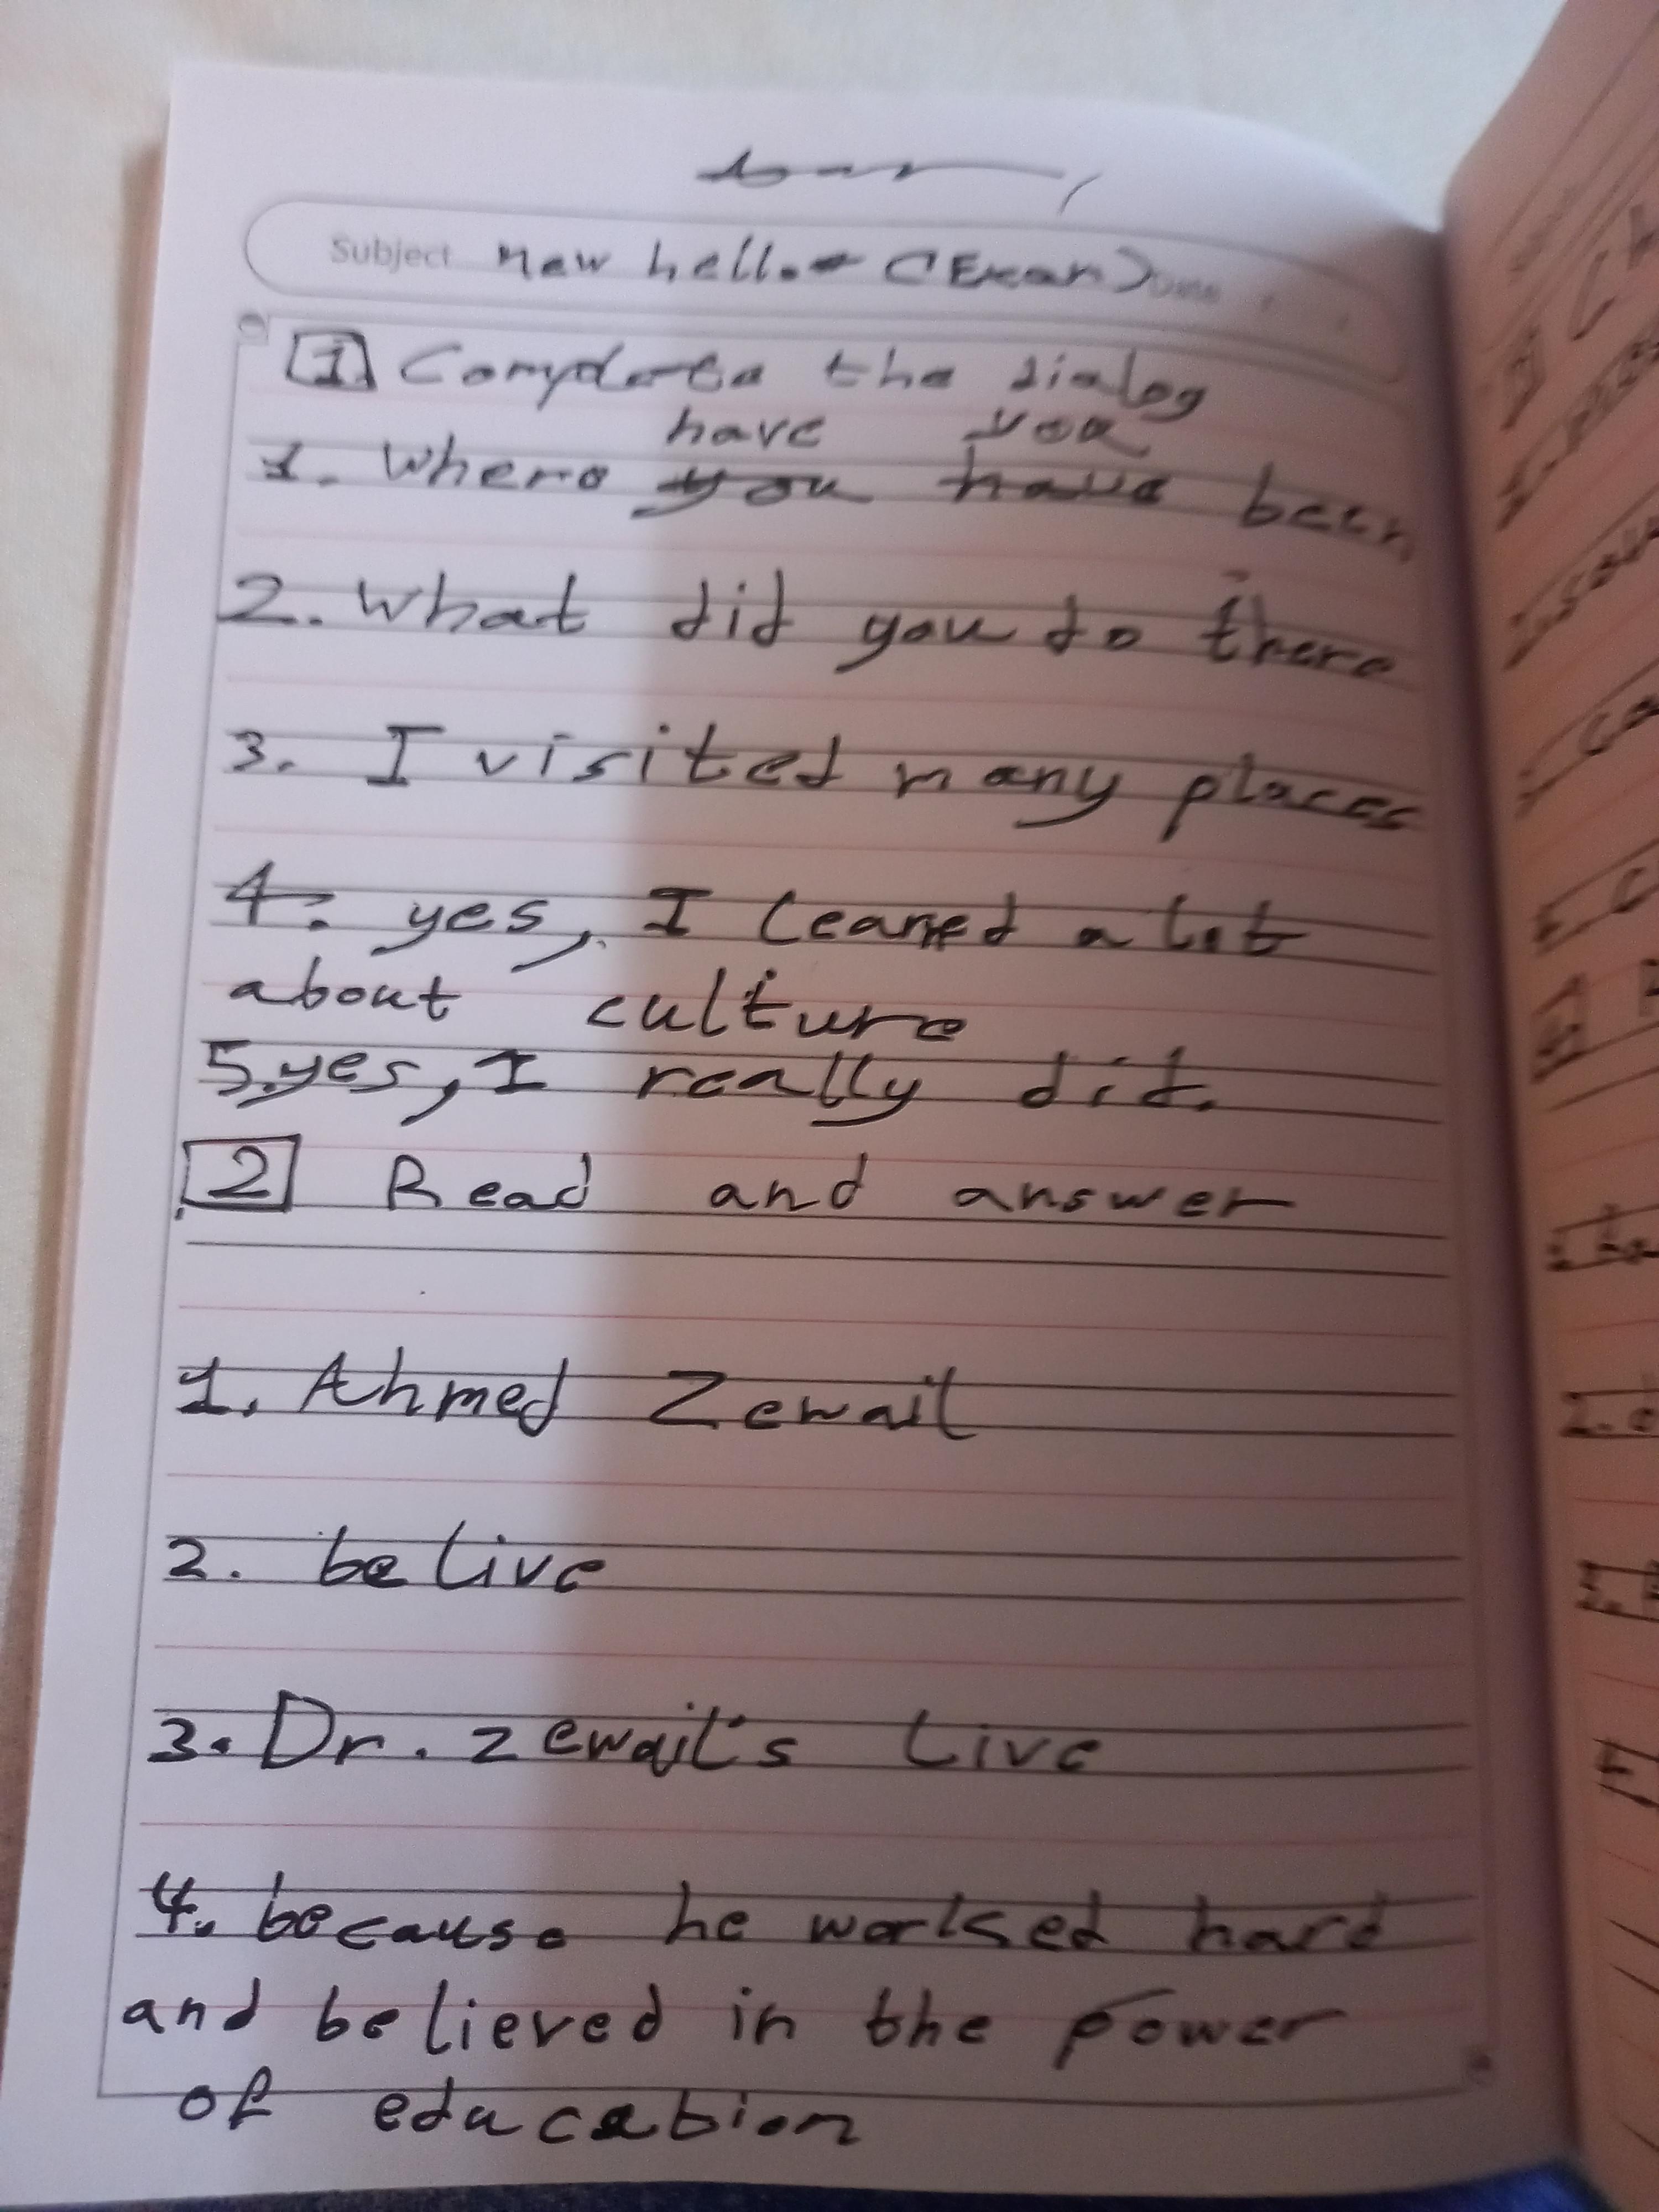 Subject new hello (Exam) Date
1 Complete the dialog
have you
1. Where you have been
2. What did you do there
3. I visited many places
4. yes, I leaned a lot
about culture
5. yes, I really did.
2 Read and answer
1. Ahmed Zewail
2. belive
3. Dr. Zewail's live
4. because he worked hard
and believed in the power
of education